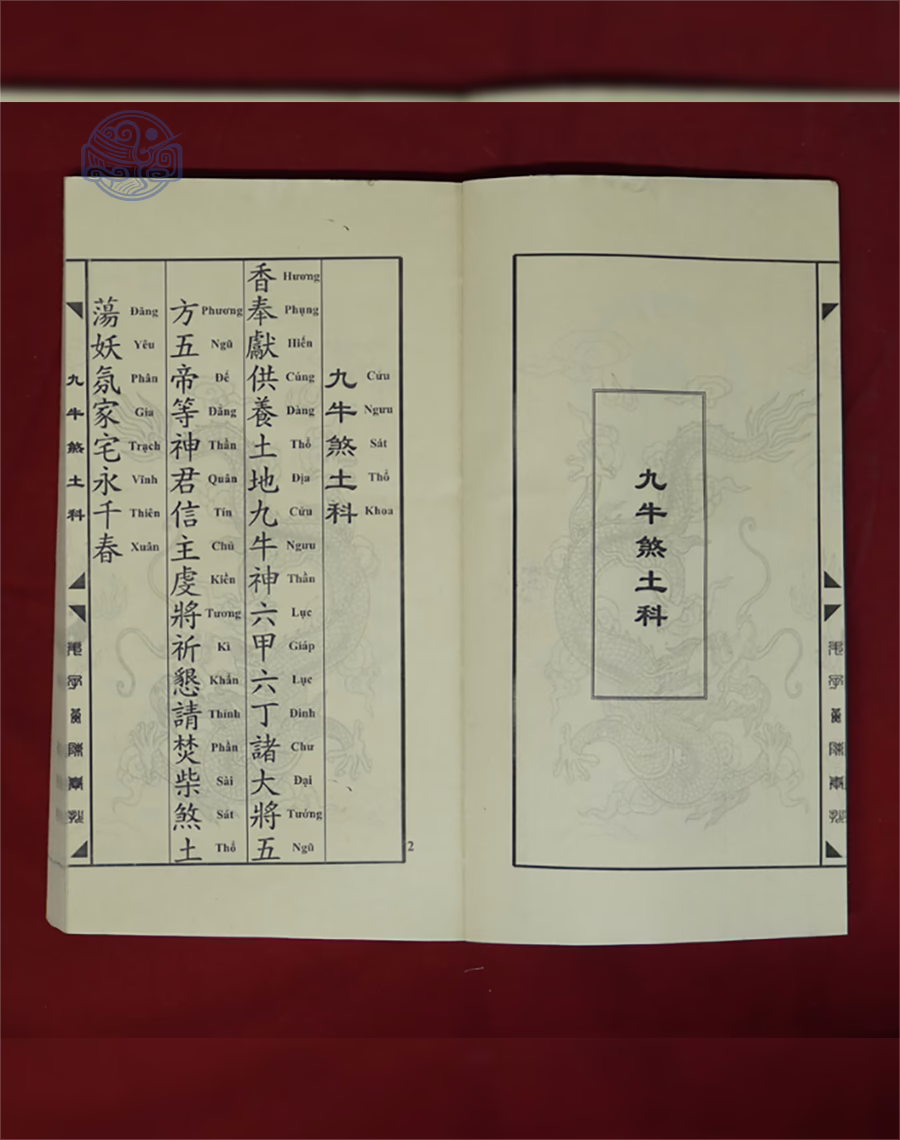 九牛煞土科
九牛煞土科
Cứu Ngưu Sát Thổ Khoa
香奉獻供養土地九牛神六甲六丁諸大將五
Hương Phụng Hiến Cúng Dàng Thổ Địa Cứu Ngưu Thần Lục Giáp Lục Đinh Chư Đại Tướng Ngũ
方五帝等神君信主虔將祈懇請焚柴煞土
Phương Ngũ Đế Đẳng Thần Quân Tín Chủ Kiền Tương Kì Khẩn Thỉnh Phần Sài Sát Thổ
蕩妖氛家宅永千春
Đãng Yêu Phân Gia Trạch Vĩnh Thiên Xuân
九牛煞土科
2